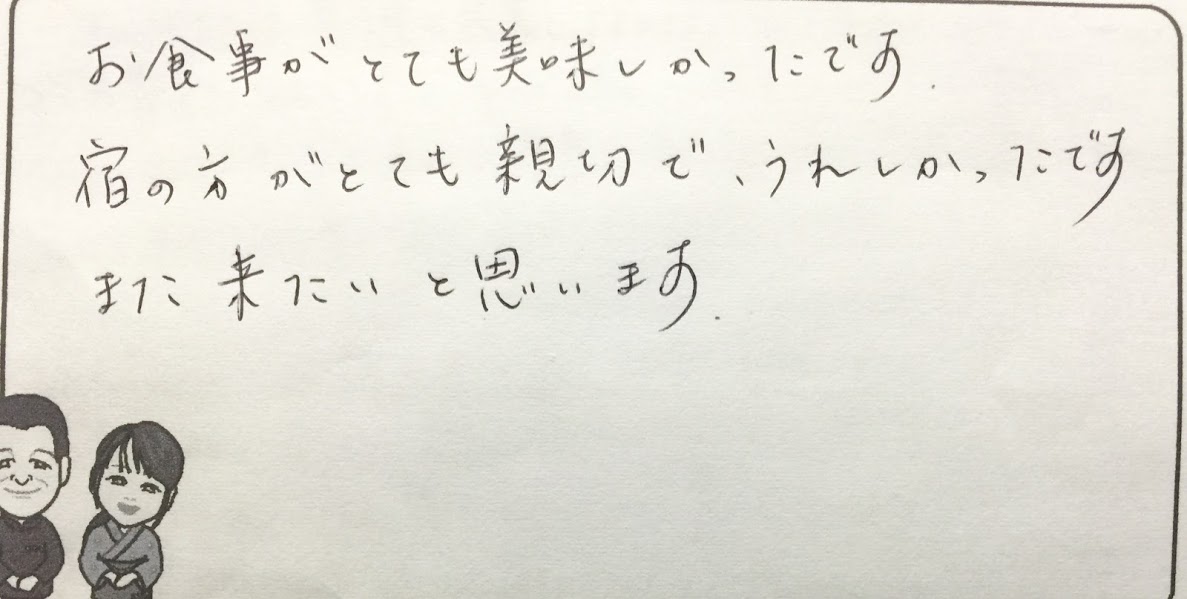 お食事がとても美味しかったです.
宿の方がとても親切で、うれしかったです
また来たいと思います.